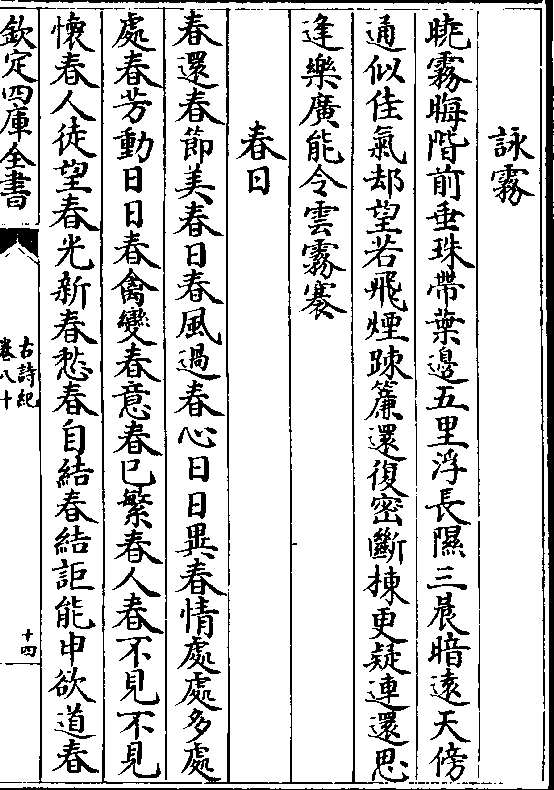 詠霧
曉霧晦階前垂珠帶葉邊五里浮長隰三晨暗遠天傍
通似佳氣却望若飛煙踈簾還復密斷揀更疑連還思
逢樂廣能令雲霧褰
春日
春還春節美春日春風過春心日日異春情處處多處
處春芳動日日春禽變春意春已繁春人春不見不見
懷春人徒望春光新春愁春自結春結詎能申欲道春
欽定四庫全書
古詩紀
卷八十
十四